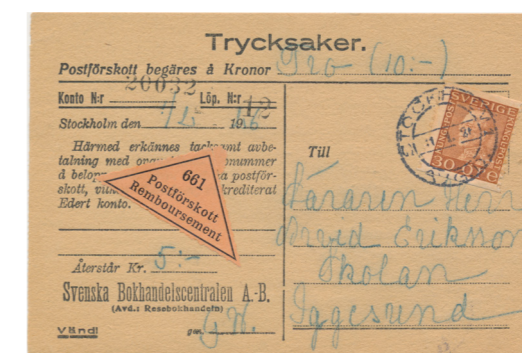 Trycksaker.
Postförskott begäres å Kronor 9 20 (10:-)
Konto N:r 20032 Löp. N:r 12
Stockholm den 19
Härmed erkännes tacksamt avbe-
talning med nummer
å belopp postför-
skott, krediterat
Edert konto.
661
Postförskott
Remboursement
Återstår Kr. 5:-
Svenska Bokhandelscentralen A.-B.
(Avd.: Resebokhandeln)
Vänd!
Till
Läraren Herr
Arvid Erikson
Skolan
Iggesund
SVERIGE
30 ÖRE